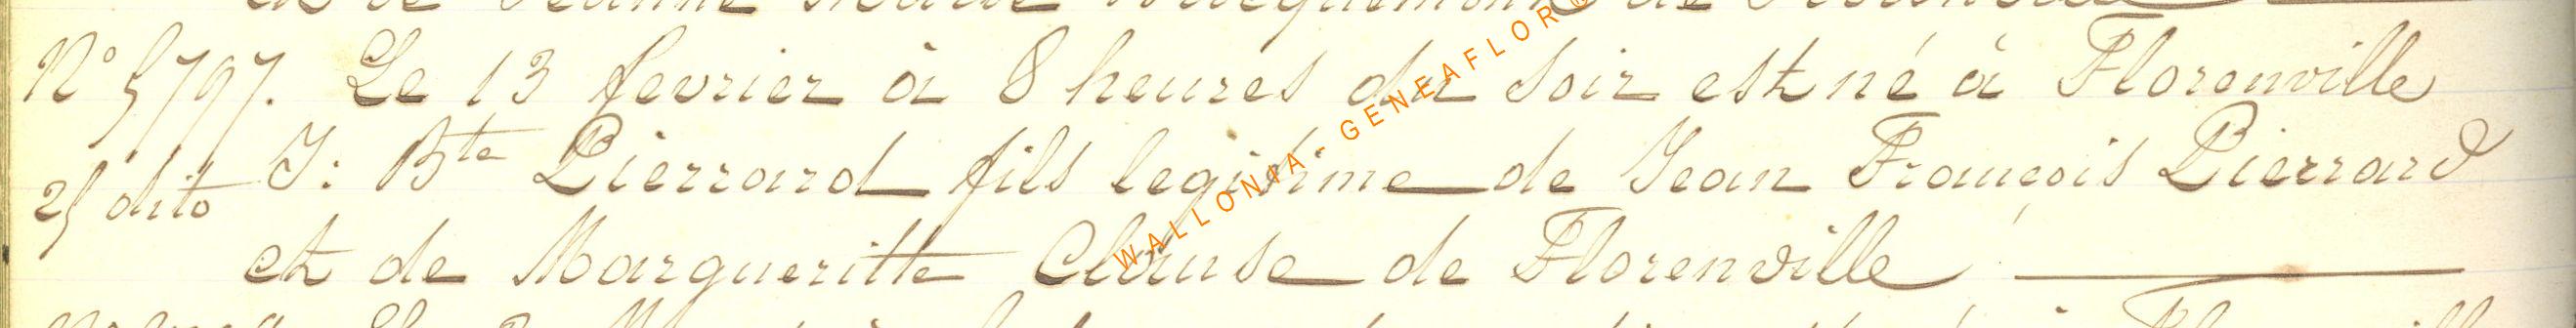 de Jeanne
N° 5797. Le 13 fevrier à 8 heures du soir est né à Florenville
J: Bte Pierrard fils legitime de Jean François Pierrard
25 dito
et de Margueritte Clause de Florenville
WALLONIA - GENEAFLOR